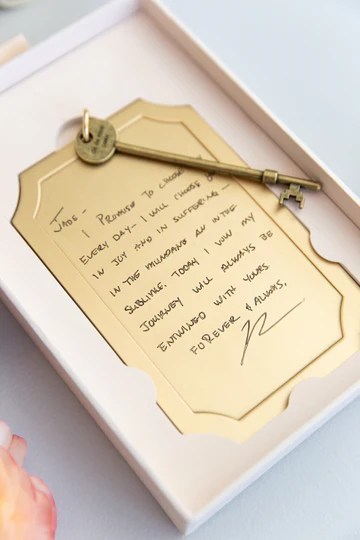 Jade -
I PROMISE TO CHOOSE
EVERY DAY - I WILL CHOOSE
IN JOY AND IN SUFFERING -
IN THE MUNDANE AN IN THE
SUBLIME. TODAY I VOW MY
JOURNEY WILL ALWAYS BE
ENTWINED WITH YOURS
FOREVER & ALWAYS,